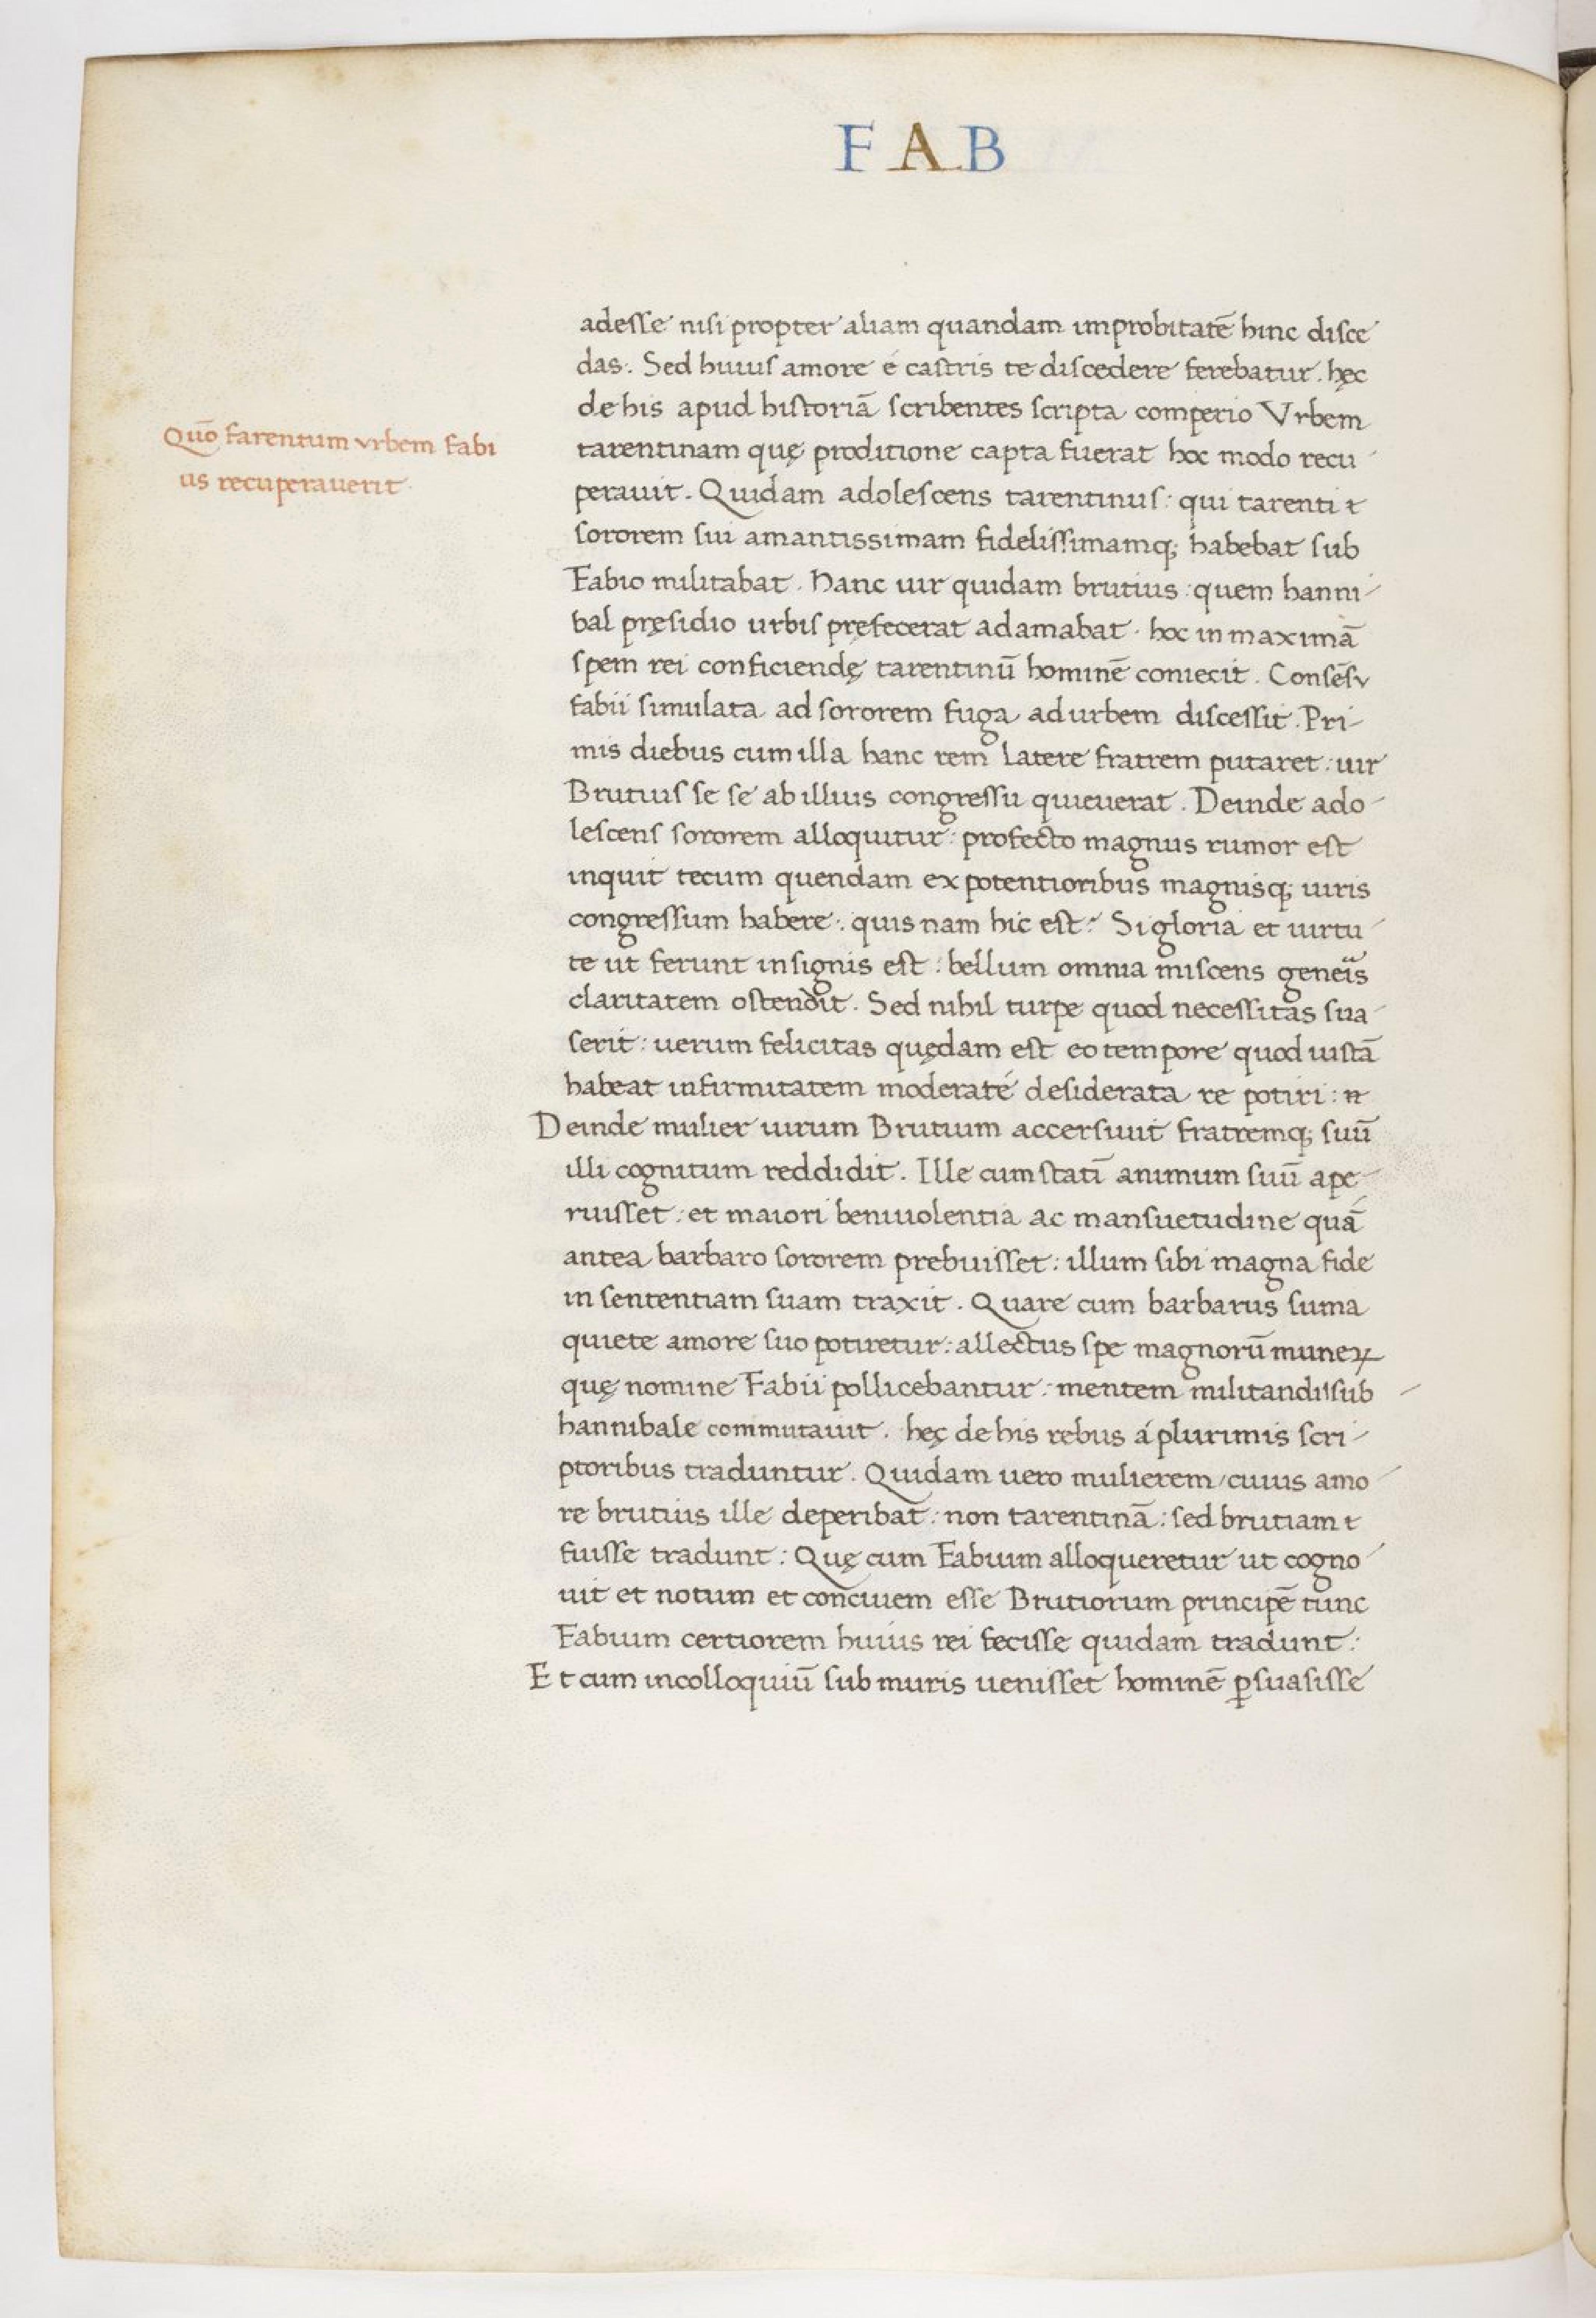 FAB
adesse nisi propter aliam quandam improbitatē hinc disce
das. Sed huius amore é castris te discedere ferebatur. hęc
de his apud historiā scribentes scripta comperio Vrbem
Quō farentum vrbem fabi
us recuperauerit.
tarentinam quę proditione capta fuerat hoc modo recu
perauit. Quidam adolescens tarentinus: qui tarenti t
sororem sui amantissimam fidelissimamq; habebat sub
Fabio militabat. Hanc uir quidam brutius: quem hanni-
bal pręsidio urbis pręfecerat adamabat. hoc in maximā
spem rei conficiendę tarentinū hominē coniecit. Consēsv
fabii simulata ad sororem fuga ad urbem discessit. Pri-
mis diebus cum illa hanc rem latere fratrem putaret: uir
Brutius se se ab illius congressu quieuerat. Deinde ado-
lescens sororem alloquitur: profecto magnus rumor est
inquit tecum quendam ex potentioribus magnisq; uiris
congressum habere: quis nam hic est? Si gloria et uirtu
te ut ferunt insignis est: bellum omnia miscens geneis
claritatem ostendit. Sed nihil turpe quod necessitas sua
serit: uerum felicitas quędam est eo tempore quod iustā
habeat infirmitatem moderaté desiderata re potiri: n
Deinde mulier uirum Brutium accersiuit fratremq; suū
illi cognitum reddidit. Ille cum statī animum suū ape-
ruisset: et maiori beniuolentia ac mansuetudine quā
antea barbaro sororem prebuisset: illum sibi magna fide
in sententiam suam traxit. Quare cum barbarus suma
quiete amore suo potiretur: allectus spe magnorū muneꝝ
quę nomine Fabii pollicebantur: mentem militandi sub
hannibale commutauit. hęc de his rebus á plurimis scri-
ptoribus traduntur. Quidam uero mulierem/cuius amo
re brutius ille deperibat: non tarentinā: sed brutiam t
fuisse tradunt: Quę cum Fabium alloqueretur ut cogno
uit et notum et conciuem esse Brutiorum principē tunc
Fabium certiorem huius rei fecisse quidam tradunt:
Et cum in colloquiū sub muris uenisset hominē ꝑsuasisse